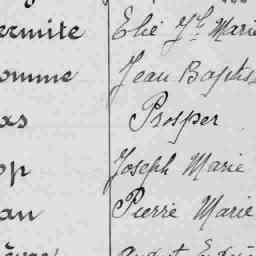 ermite Elie Jh Marie
omme Jean Baptis
as Prosper
op Joseph Marie
an Pierre Marie